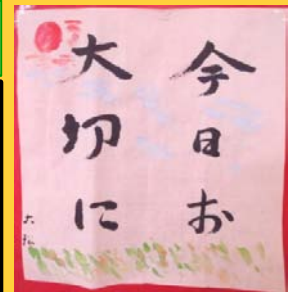 今日お
大切に